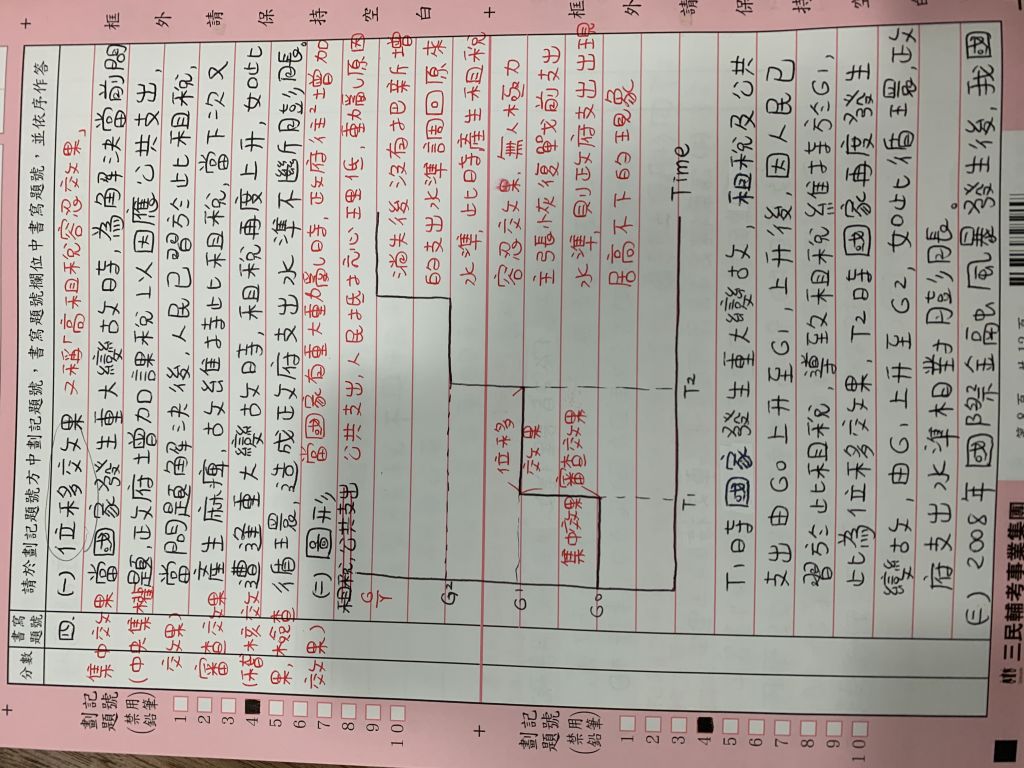 框 外 請 保 持 空 白
框 外 請 保 持 空 白
分數
書寫題號
請於劃記題號方中劃記題號，書寫題號欄位中書寫題號，並依序作答
劃記題號
(禁用鉛筆)
1
2
3
4
5
6
7
8
9
10
四.
(一) 位移效果 又稱「高租稅容忍效果」
集中效果
(中央集權
效果)
審查效果
(稽核效
果,檢查
效果)
當國家發生重大變故時，為解決當前問
題，政府增加課稅以因應公共支出，
當問題解決後，人民已習於此租稅，
產生麻痺，故維持此租稅，當下次又
遭逢重大變故時，租稅再度上升，如此
循環，造成政府支出水準不斷膨脹。
(二) 圖形
當國家有重大動亂時，政府往往增加
公共支出，人民抵抗心理低，動亂原因
消失後沒有把新增
的支出水準調回原來
水準，此時產生租稅
容忍效果，無人極力
主張恢復戰前支出
水準，則政府支出出現
居高不下的現象
租稅，公共支出
G/Y
G2
G1
G0
位移效果
集中效果
審查效果
T1
T2
Time
劃記題號
(禁用鉛筆)
1
2
3
4
5
6
7
8
9
10
T1時國家發生重大變故，租稅及公共
支出由G0上升至G1，上升後，因人民已
習於此租稅，導致租稅維持於G1，
此為位移效果，T2時國家再度發生
變故，由G1上升至G2，如此循環，政
府支出水準相對膨脹。
(三) 2008年國際金融風暴發生後，我國
三民輔考事業集團